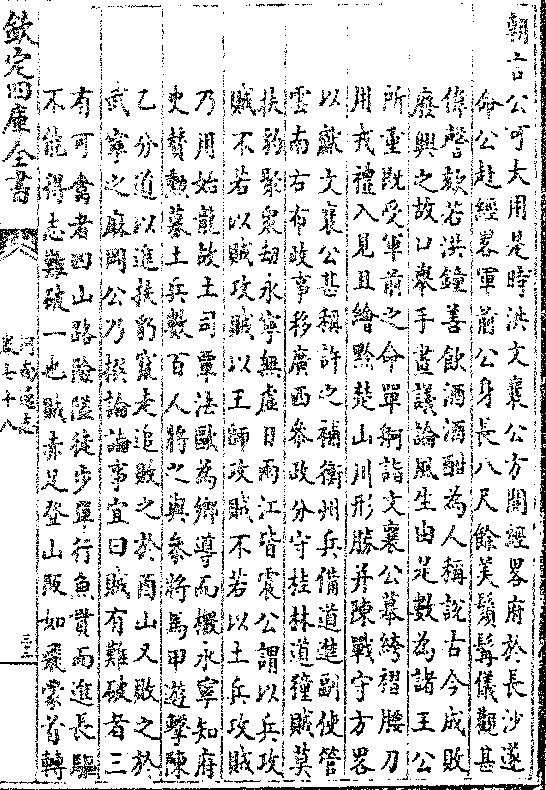 朝言公可大用是時洪文襄公方開經畧府於長沙遂
命公赴經畧軍前公身長八尺餘美鬚髯儀觀甚
偉聲欬若洪鐘善飲酒酒酣為人稱說古今成敗
廢興之故口舉手畫議論風生由是數為諸王公
所重既受軍前之命單舸詣文襄公幕絝褶腰刀
用戎禮入見且繪黔楚山川形勝并陳戰守方畧
以獻文襄公甚稱許之補衡州兵備道遷副使管
雲南右布政事移廣西參政分守桂林道獞賊莫
扶豹聚衆劫永寧無虛日兩江皆震公謂以兵攻
賊不若以賊攻賊以王師攻賊不若以土兵攻賊
乃用始龍故土司覃法歐為鄉導而檄永寧知府
史贊勳募土兵數百人將之與參將馬甲遊擊陳
乙分道以進扶豹竄走追敗之於酉山又敗之於
武寧之麻岡公乃撰論論事宜曰賊有難破者三
有可禽者四山路險隘徒步單行魚貫而進長驅
不能得志難破一也賊赤足登山阪如飛蒙首轉
欽定四庫全書
河南通志
卷七十八